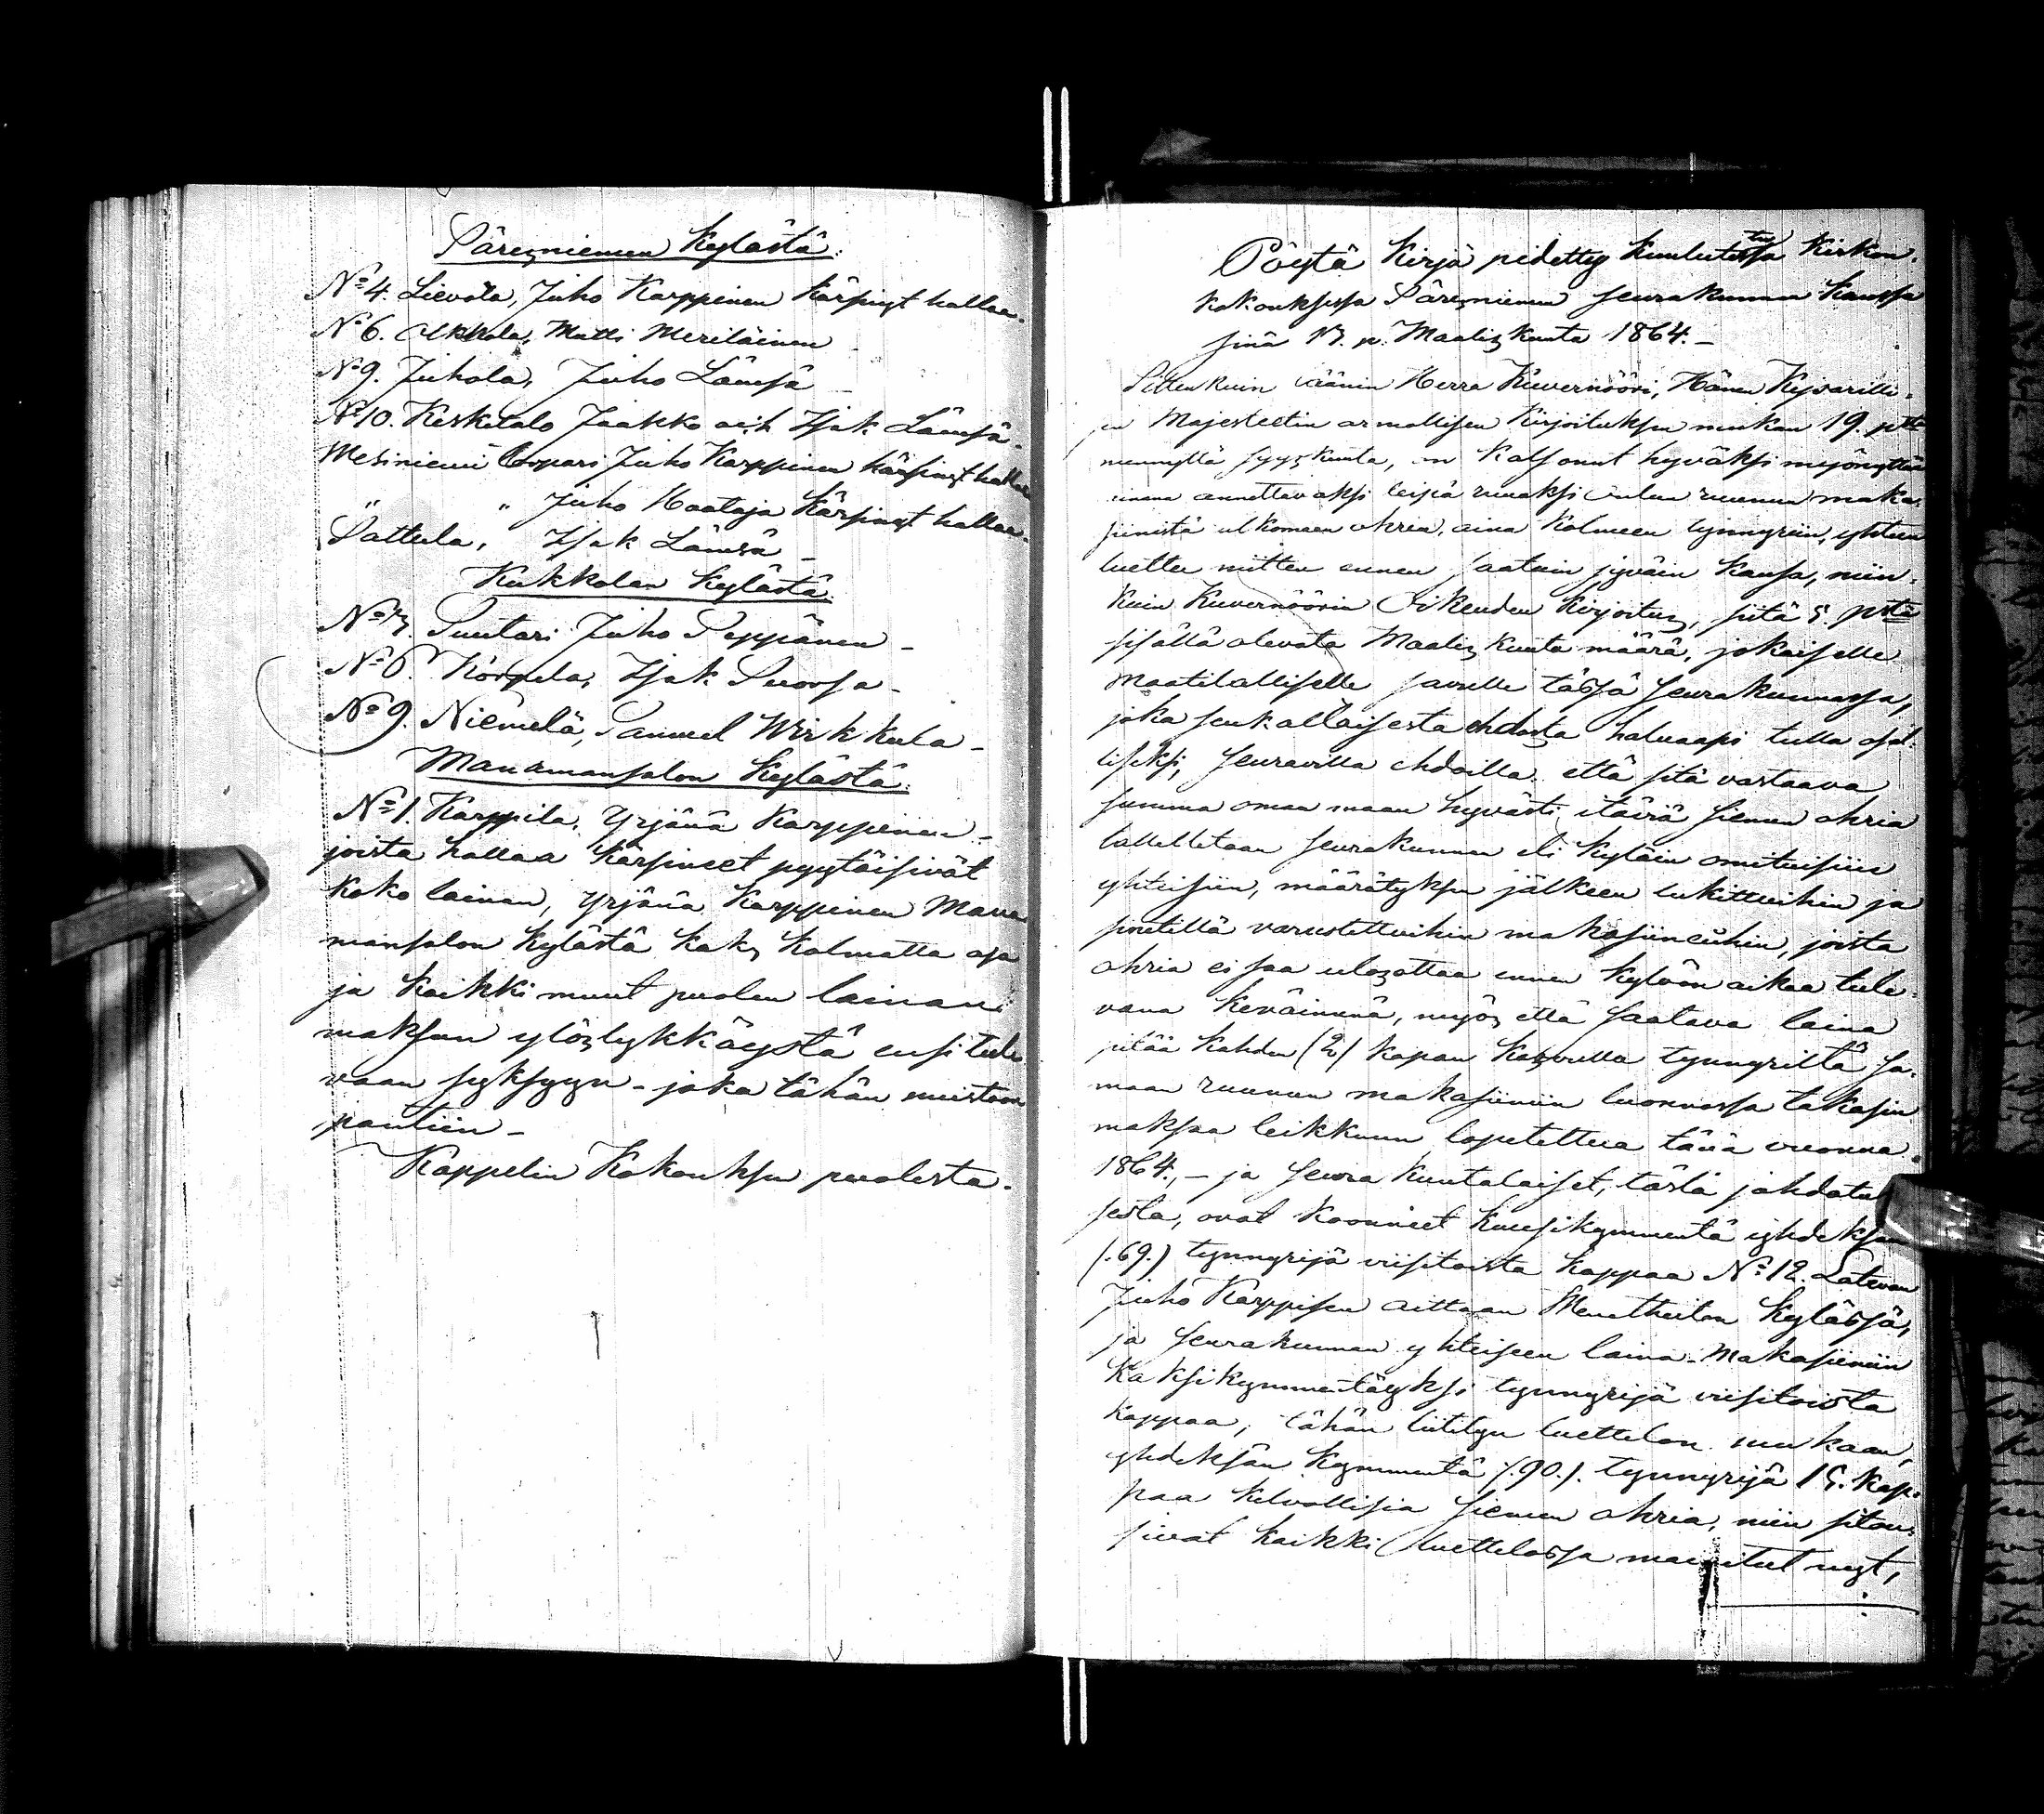 Säresniemen Kylästä:
No 4. Lievola, Juho Karppinen kärsinyt hallaa.
No 6. Akkola, Matti Meriläinen –
No 9. Juhola, Juho Lämsä –
No 10. Keskitalo Jaakko ach Isak Lämsä –
Mesiniemi Loopari Juho Karppinen kärsinyt hallaa
" " Juho Haataja kärsinyt hallaa.
Pattula, Isak Lämsä –
Kukkolan Kylästä:
Suutari Juho Seppänen –
No 6. Körpela, Isak Suorsa –
No 9. Niemelä, Samuel Wirkkula –
Manamansalon Kylästä:
No 1. Karppila, Yrjänä Karppinen –
joista hallaa kärsineet pyytäisivät
koko lainan, Yrjänä Karppinen Mana
mansalon kylästä kaks kolmatta osa
ja kaikki muut puolen lainan
maksun ylöslykkäystä ensi tule
vaan syksyyn – joka tähän muistoon
pantiin –
Kappelin Kokouksen puolesta.
Pöytä Kirja pidetty kuulutetussa Kirkon
kokouksessa Säresniemen seurakunnan kanssa
sinä 17. p. Maaliskuuta 1864. –
Sitten kuin läänin Herra Kuvernööri, Hänen Keisarilli-
sen Majesteetin armollisen Kirjoituksen mukaan 19. ptä
mennyttä syyskuuta, on katsonut hyväksi myönyttää
annettavaksi leipä ruuaksi Oulun ruunun maka-
siinistä ulkomaan ohria, aina kolmeen tynnyriin, yhteen
luettu mitten ennen saatuin jyväin kansa, niin-
kuin Kuvernöörin Oikeuden kirjoitus, sitä 5. ptä
sisällä olevata Maalis kuuta määrä, jokaiselle
maatilalliselle savulle tässä seurakunnassa,
joka senkaltaisesta ehdosta haluaapi tulla osal-
liseksi, seuravilla ehdoilla että sitä vastaava
summa omaa maan hyvästi itäviä siemen ohria
talletetaan seurakunnan eli kyläin omituisiin
yhteisiin, määrätyksen jälkeen lukittuihin ja
sinetillä varustettuihin makasiineihin, joista
ohria ei saa ulosottaa ennen kylvön aikaa tule-
vana keväinenä, myös että saatava laina
pitää kahden (2) kapan kasvulla tynnyriltä sa-
maan ruunun makasiiniin luonnossa takasin
maksaa leikkuun lopetettua tänä vuonna
1864., – ja seurakuntalaiset, tästä johdatuk
sesta, ovat koonneet kuusikymmentä yhdeksän
(:69.) tynnyrijä viisitoista kappaa No 12. Latvan
Juho Karppisen aittaan Kylässä,
ja seurakunnan yhteiseen laina-Makasiiniin
kaksikymmentäyksi tynnyrijä viisitoista
kappaa, tähän liitetyn luettelon mukaan,
yhdeksän kymmentä (:90.) tynnyrijä 15. kap-
paa kelvollisia siemen ohria, niin sitou-
sivat kaikki luettelossa mainitut nyt,